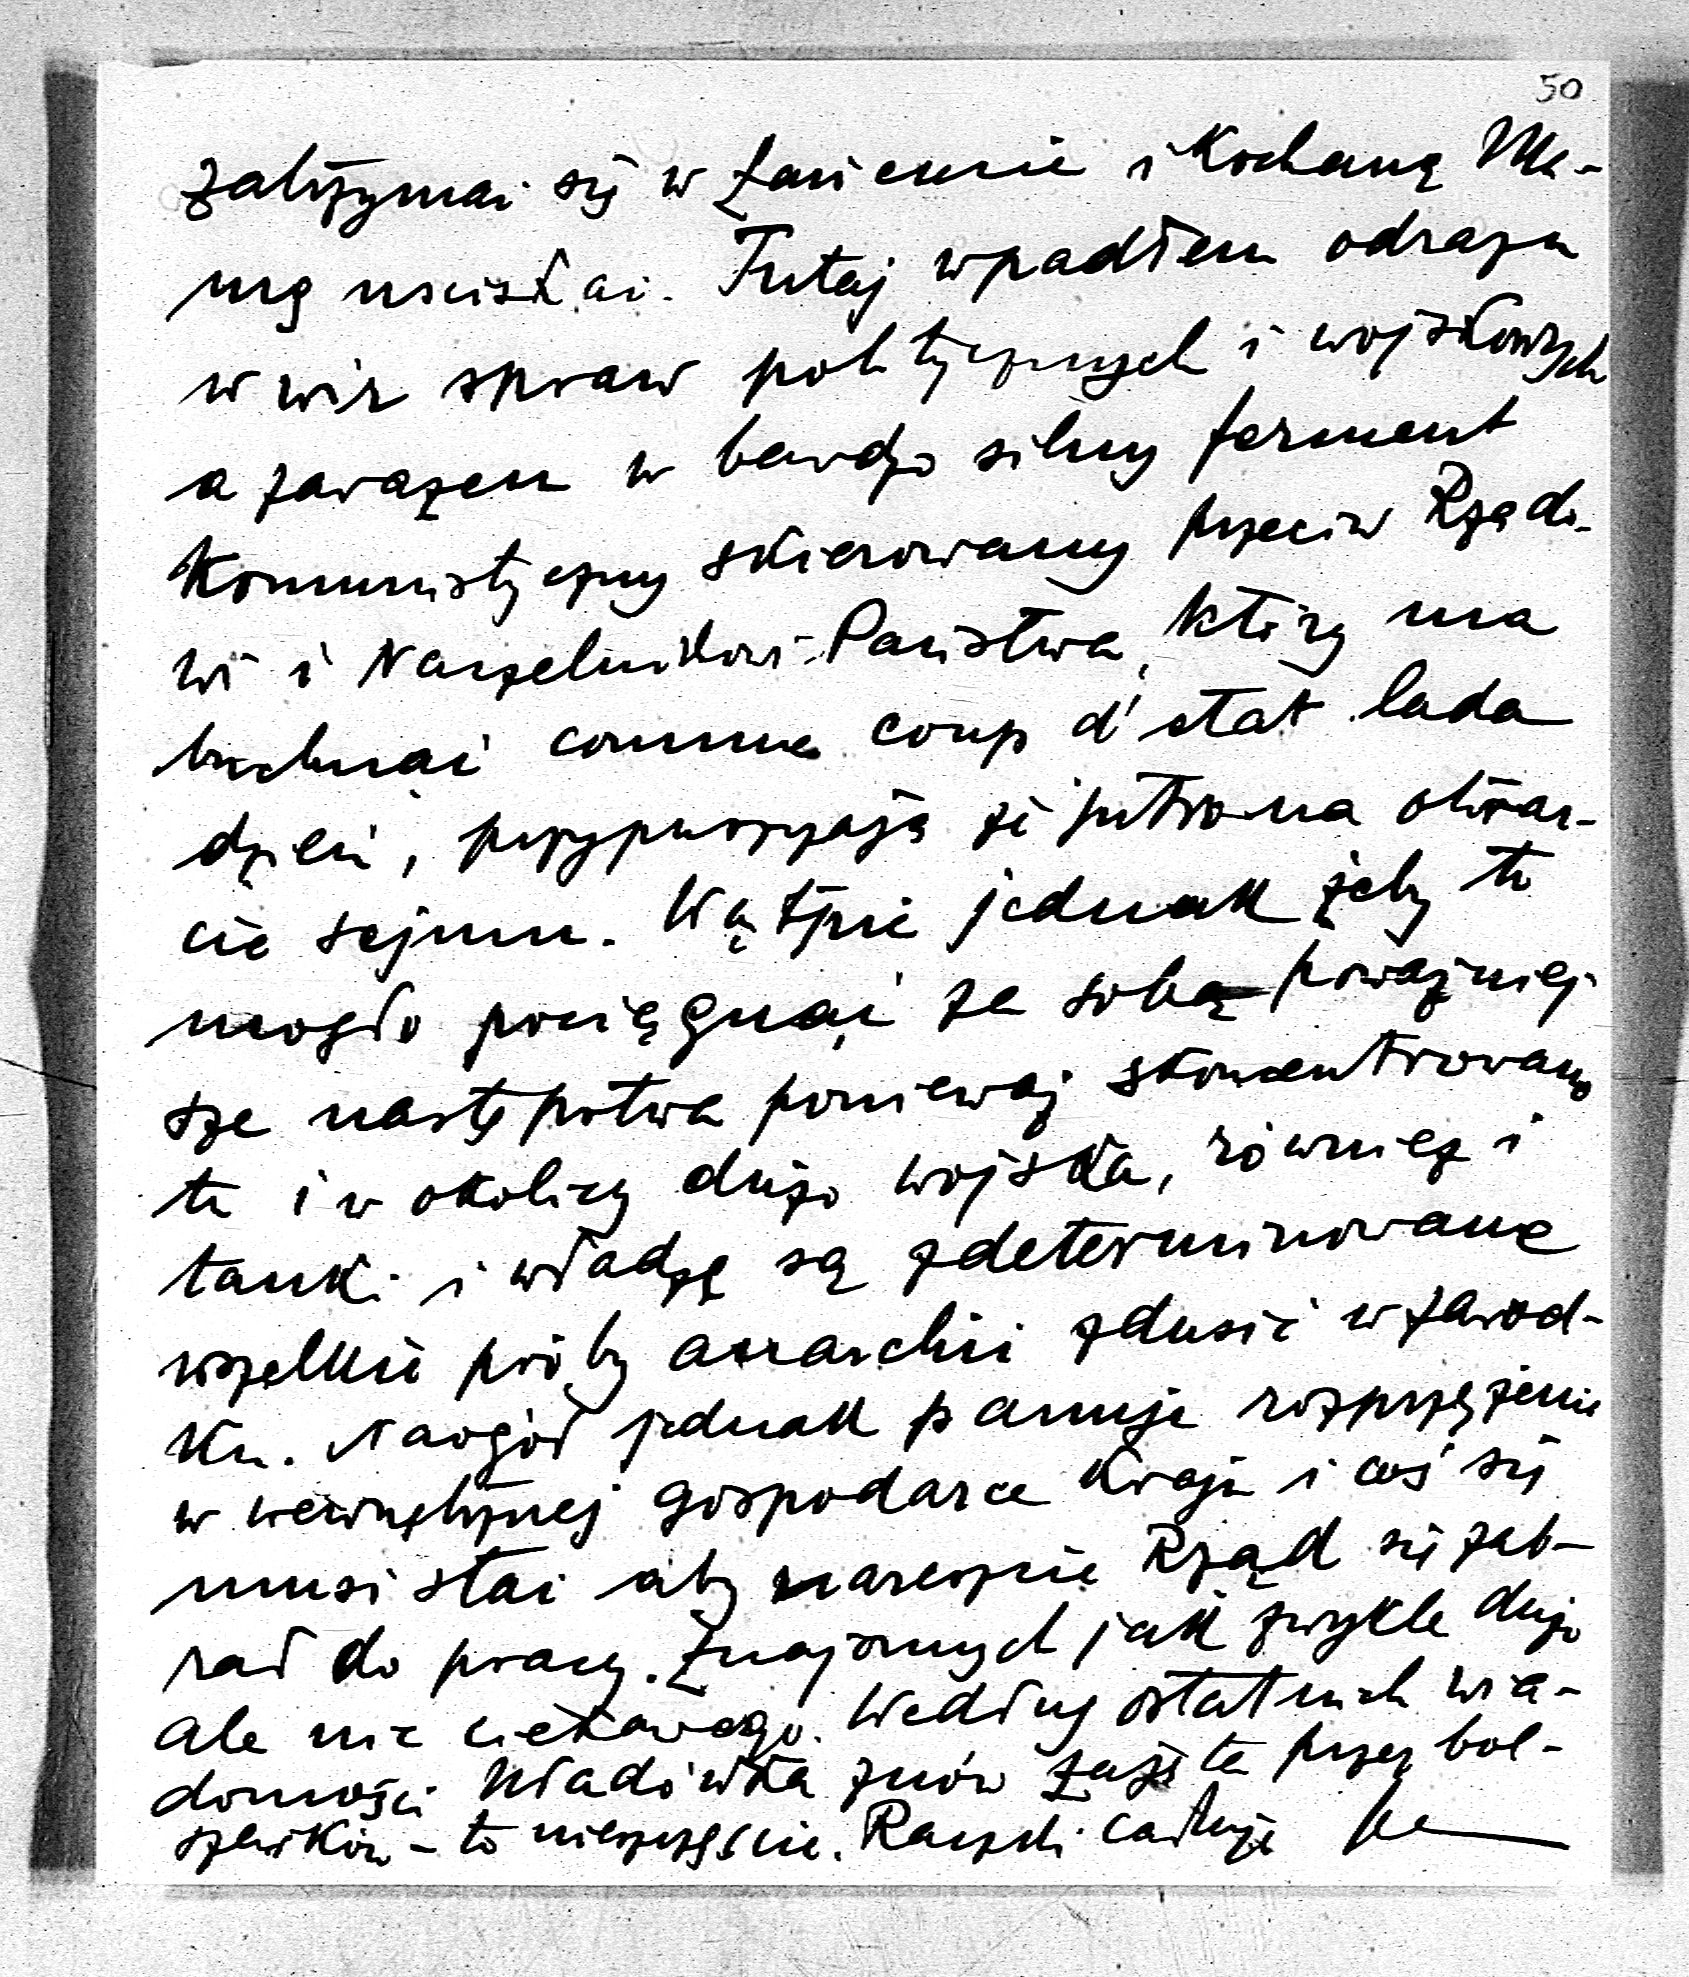 50
zatrzymać się w Łańcucie i Kochaną Ma-
mę usciskać. Tutaj wpadłem odrazu
w wir spraw politycznych i wojskowych
a zarazem w bardzo silny ferment
Komunistyczny skierowany przeciw Rządo-
wi i Naczelnikowi Państwa, który ma
buchnąć comme coup d'etat lada
dzień, przypuszczają że jutro na otwar-
cie sejmu. Wątpię jednak żeby to
mogło pociągnąć za sobą poważniej-
sze następstwa ponieważ skoncentrowano
tu i w okolicy dużo wojska, również i
tanki i władze są zdeterminowane
wszelkie próby anarchii zdusić w zarod-
ku. Naogół jednak panuje rozprzężenie
w wewnętrznej gospodarce Kraju i coś się
musi stać aby nareszcie Rząd się zab-
rał do pracy. Znajomych jak zwykle dużo
ale nic ciekawego. Według ostatnich wia-
domości Kładówka znów zajęta przez bol-
szewików – to nieszczęście. Rączki całuję